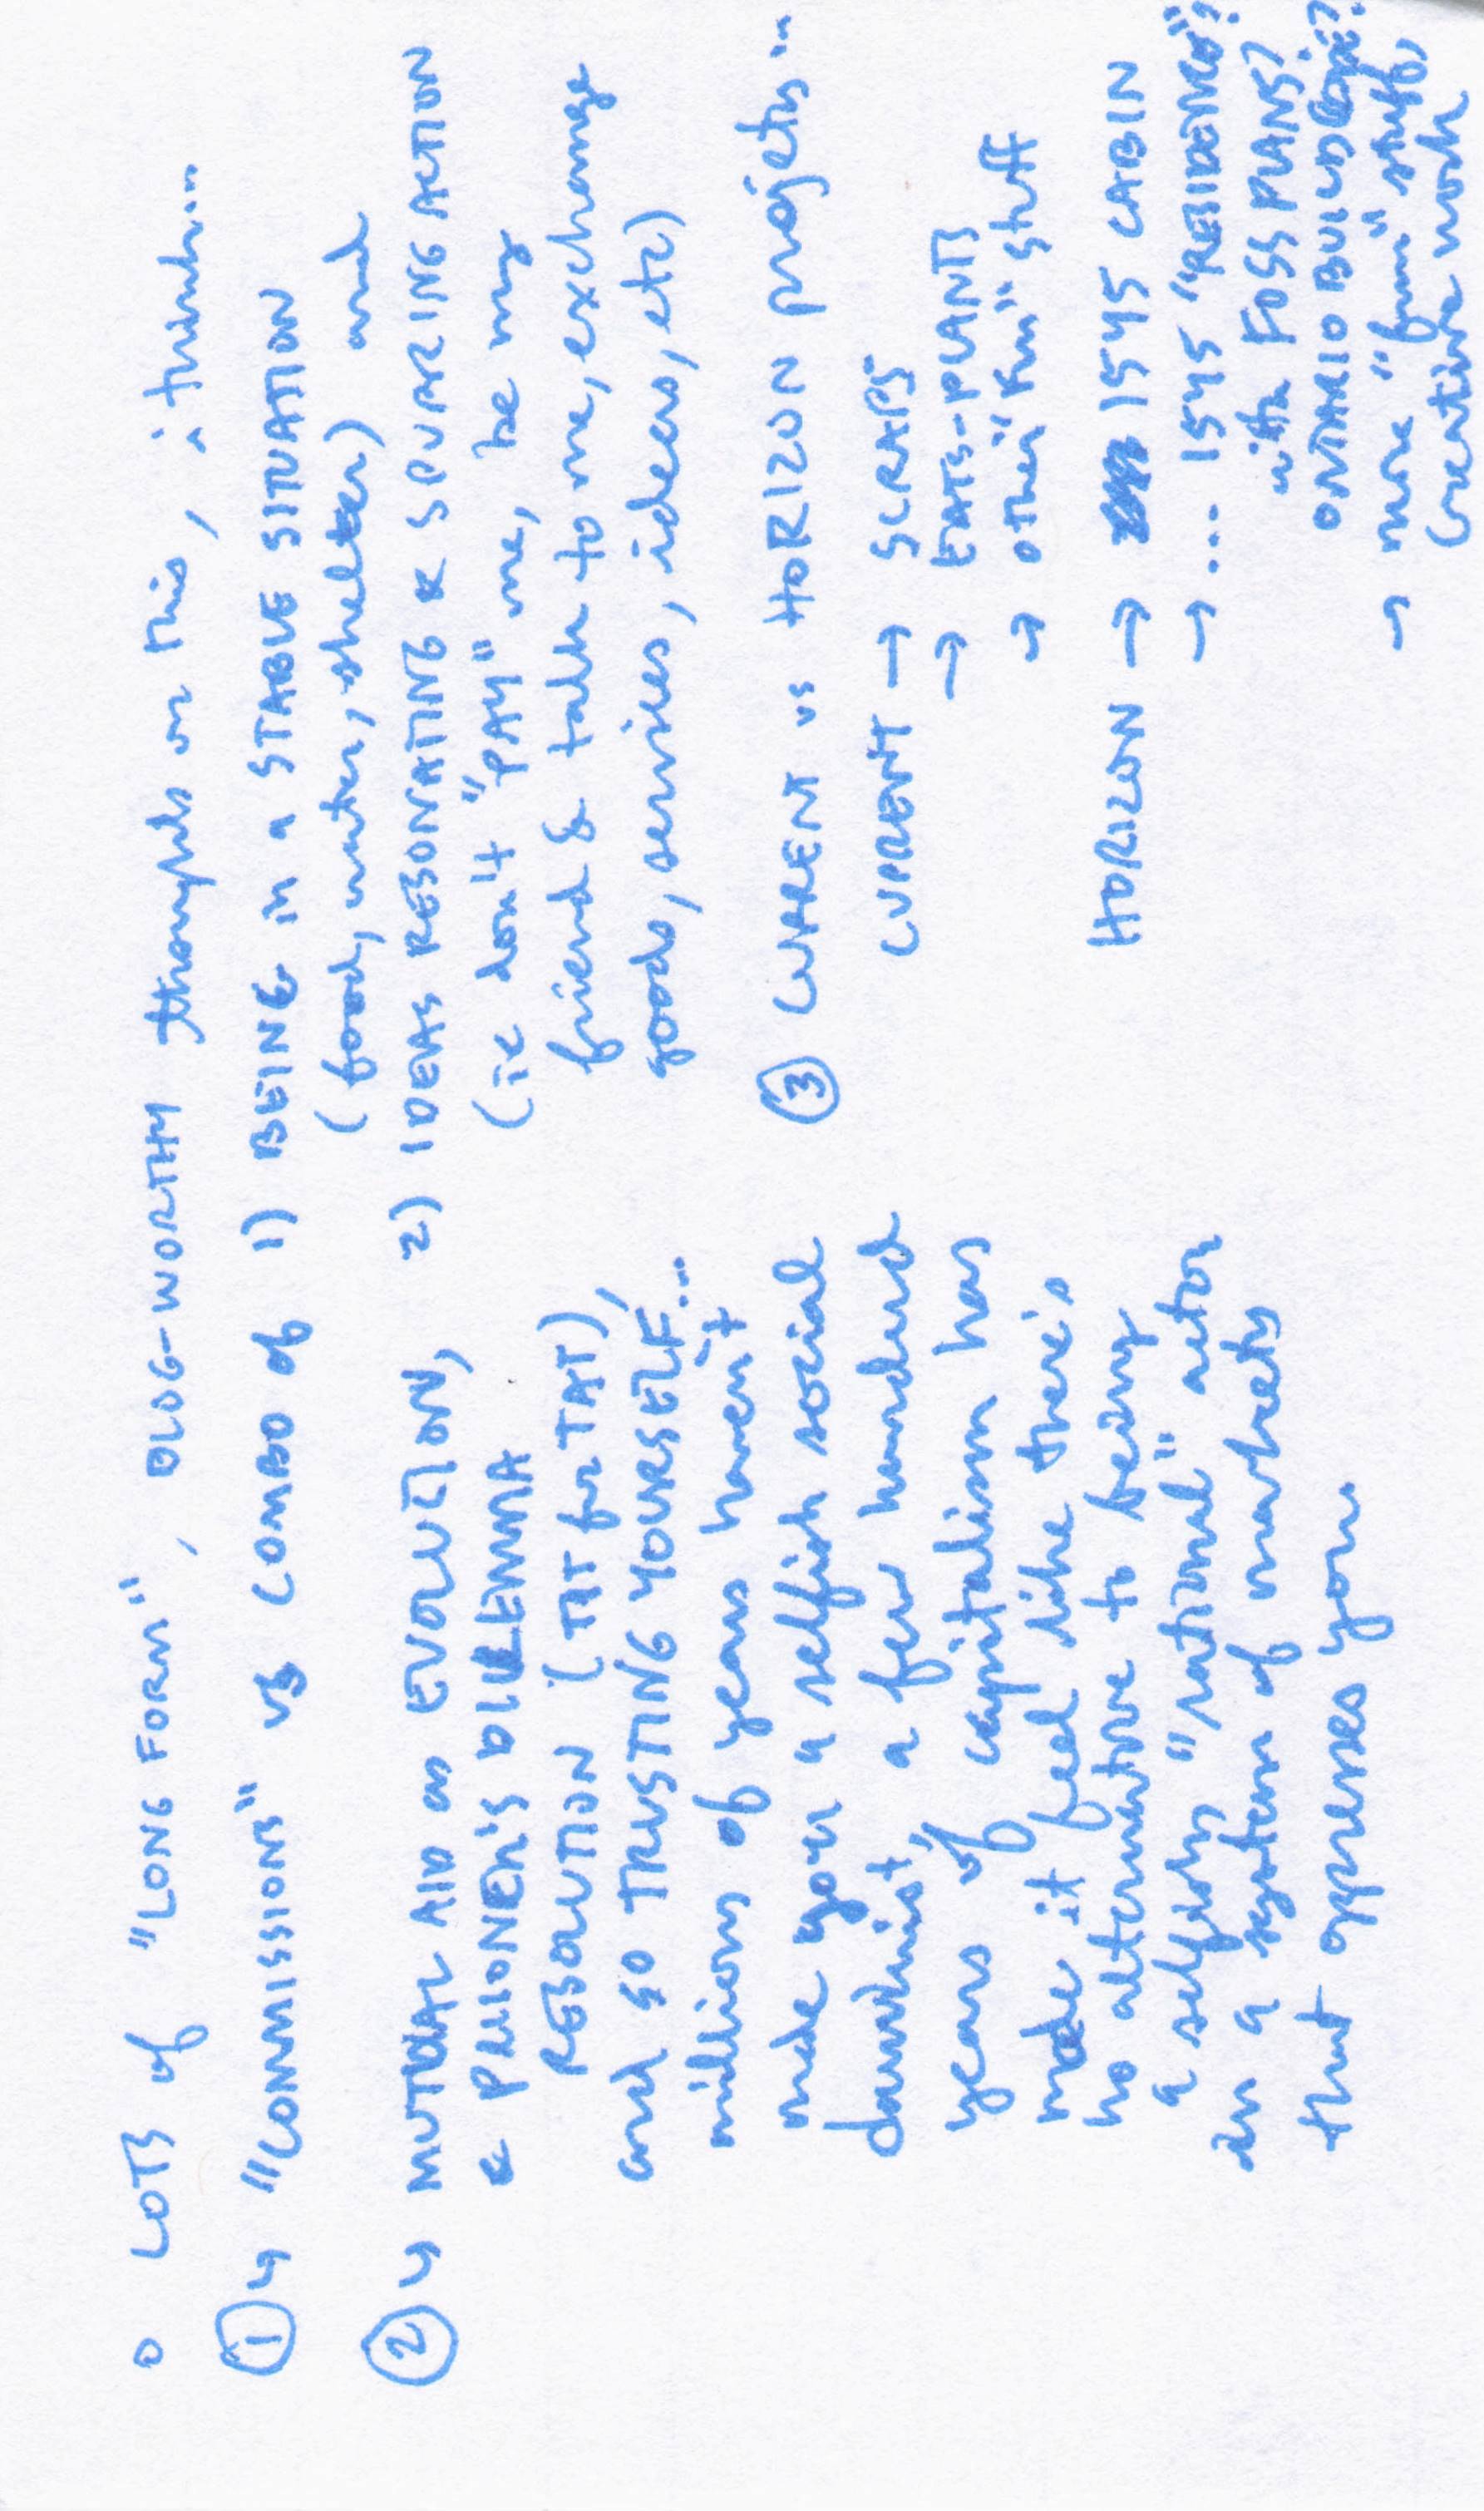 o LOTS of "LONG FORM", BLOG-WORTHY thoughts on this, i think...
① ↳ "COMMISSIONS" vs COMBO of 1) BEING in a STABLE SITUATION
(food, water, shelter) and
2) IDEAS RESONATING & SPURRING ACTION
(ie don't "PAY" me, be my
friend & talk to me, exchange
goods, services, ideas, etc)
② ↳ MUTUAL AID as EVOLUTION,
& PRISONER'S DILEMMA
RESOLUTION (TAT for TAT),
and so TRUSTING YOURSELF...
millions of years haven't
made you a selfish social
darwinist, a few hundred
years of capitalism has
made it feel like there's
no alternative to being
a selfish "rational" actor
in a system of markets
that oppresses you
③ CURRENT vs HORIZON projects...
CURRENT → SCRAPS
→ EATS-PLANTS
→ other "fun" stuff
HORIZON → 1545 CABIN
→ ... 1545 "RESIDENCE"?
with FOSS PLANS?
ONTARIO BUILD
→ more "fun" stuff,
creative work